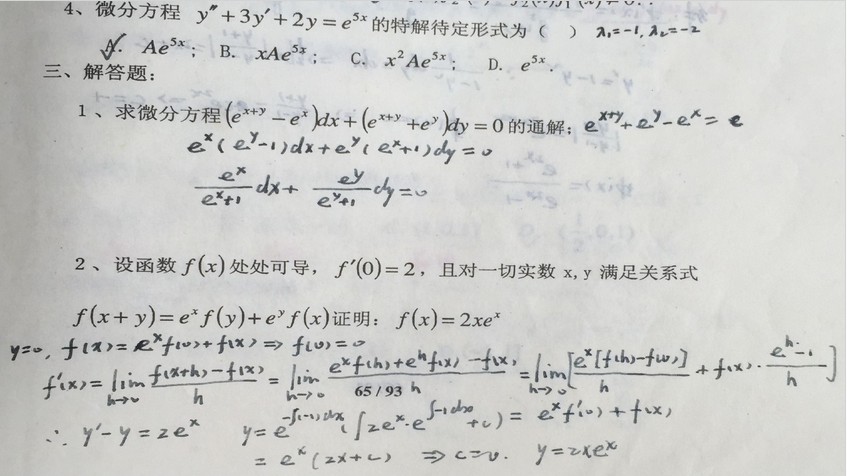 4、微分方程 y″+3y′+2y=e^{5x}的特解待定形式为（ ） λ₁=-1, λ₂=-2
✓A. Ae^{5x}； B. xAe^{5x}； C. x²Ae^{5x}； D. e^{5x}.
三、解答题：
1、求微分方程(e^{x+y}-e^x)dx+(e^{x+y}+e^y)dy=0的通解； e^{x+y}+e^y-e^x=c
e^x(e^y-1)dx+e^y(e^x+1)dy=0
\frac{e^x}{e^x+1}dx+\frac{e^y}{e^y+1}dy=0
2、设函数f(x)处处可导，f′(0)=2，且对一切实数x,y 满足关系式
f(x+y)=e^x f(y)+e^y f(x)证明：f(x)=2xe^x
y=0, f(x)=e^x f(0)+f(x) ⇒ f(0)=0
f′(x)=lim_{h→0}\frac{f(x+h)-f(x)}{h}=lim_{h→0}\frac{e^x f(h)+e^h f(x)-f(x)}{h}=lim_{h→0}[\frac{e^x[f(h)-f(0)]}{h}+f(x)·\frac{e^h-1}{h}]
65 / 93
∴ y′-y=2e^x y=e^{-∫(-1)dx}(∫2e^x·e^{∫-1dx}+c)=e^x f′(0)+f(x)
=e^x(2x+c) ⇒c=0. y=2xe^x